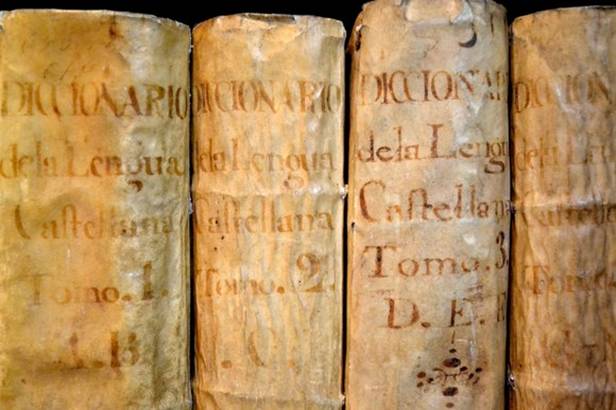 DICCIONARIO
dela Lengua
Castellana
Tomo. 1.
A. B.
DICCIONARIO
dela Lengua
Castellana
Tomo. 2.
. C.
DICCIONAR
dela Lengu
Castellana
Tomo. 3.
D. E. F
DICCION
dela Len
Castella
Tomo